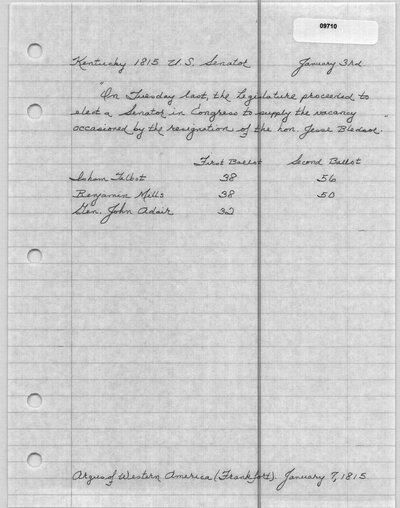 09710
Kentucky 1815 U.S. Senator January 3rd
"On Tuesday last, the Legislature proceeded to
elect a Senator in Congress to supply the vacancy
occasioned by the resignation of the hon. Jesse Bledsoe."
First Ballot Second Ballot
Isham Talbot 38 56
Benjamin Mills 38 50
Gen. John Adair 32
Argus of Western America (Frankfort). January 7, 1815